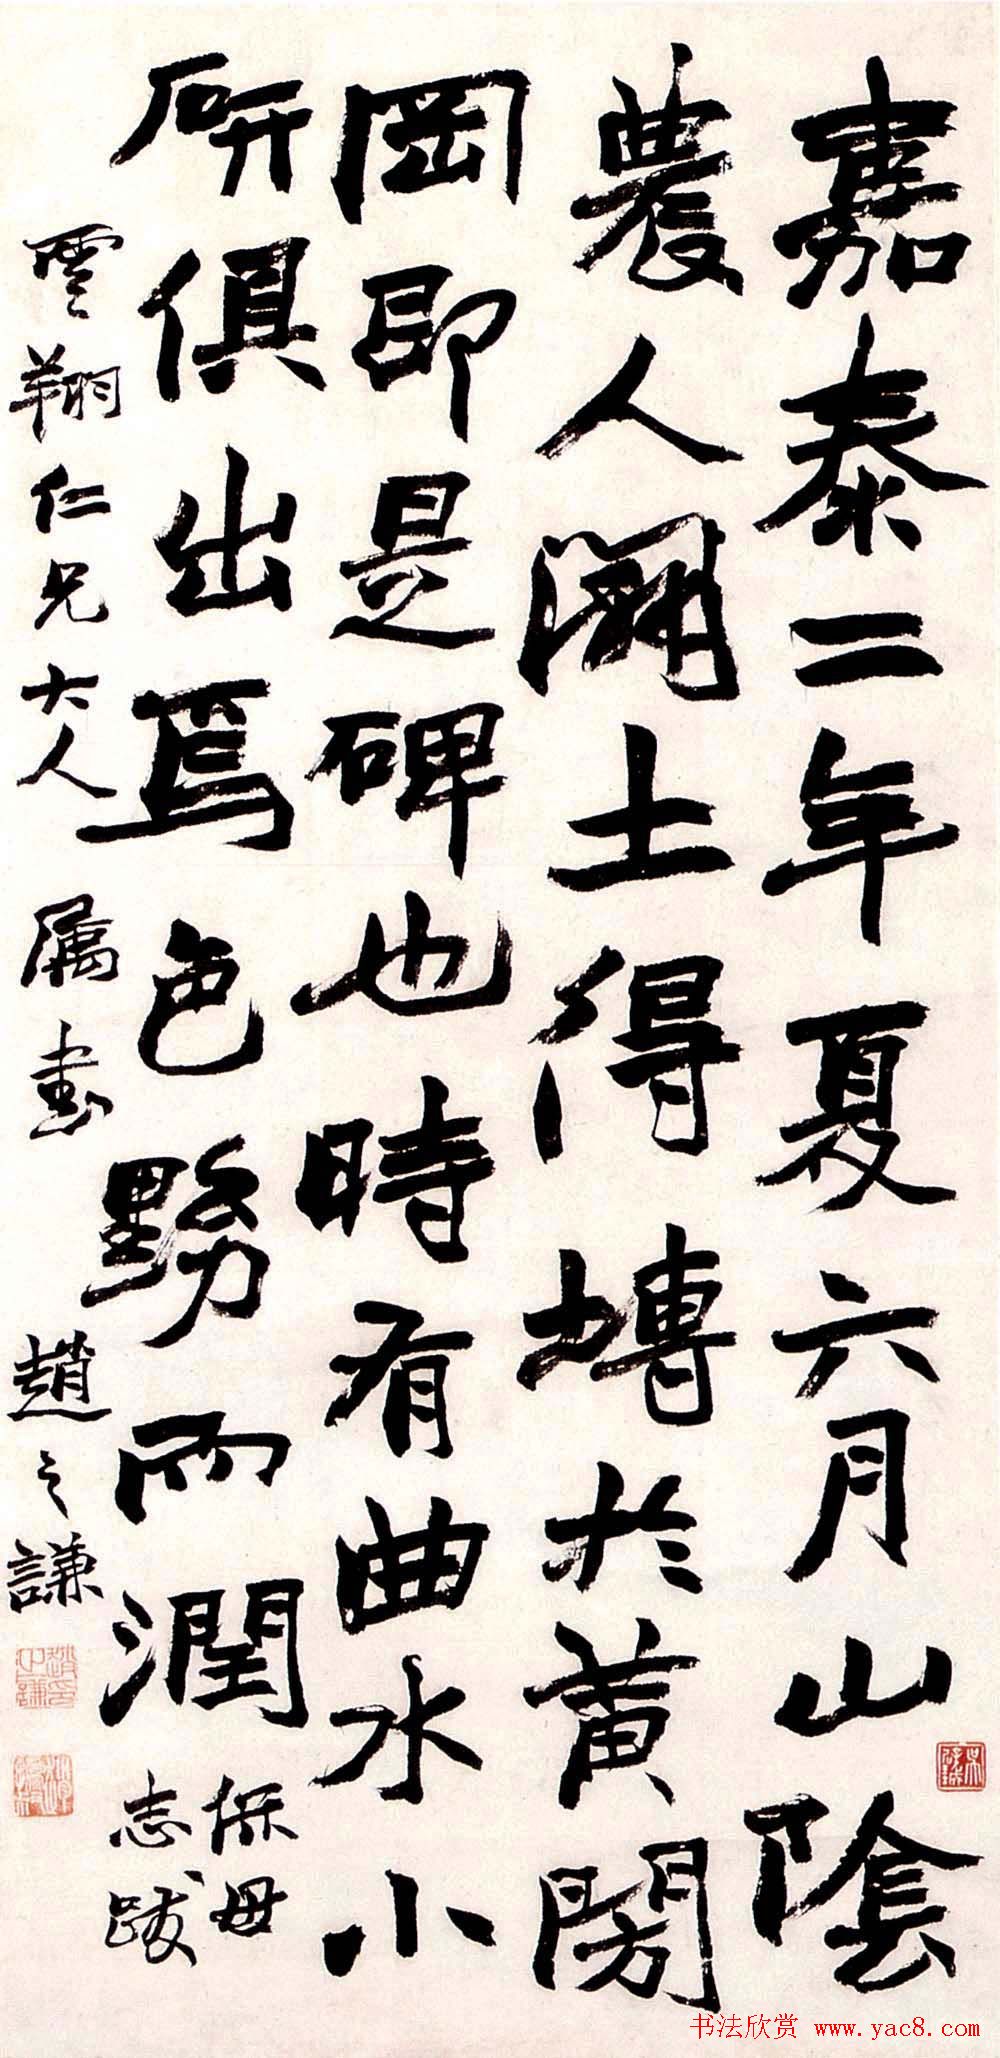 嘉泰二年夏六月山陰
農人闢土得塼於黃閍
岡即是碑也時有曲水小
硏俱出焉色黝而潤
保母
志跋
雲翔仁兄大人屬書趙之謙
書法欣赏 www.yac8.com